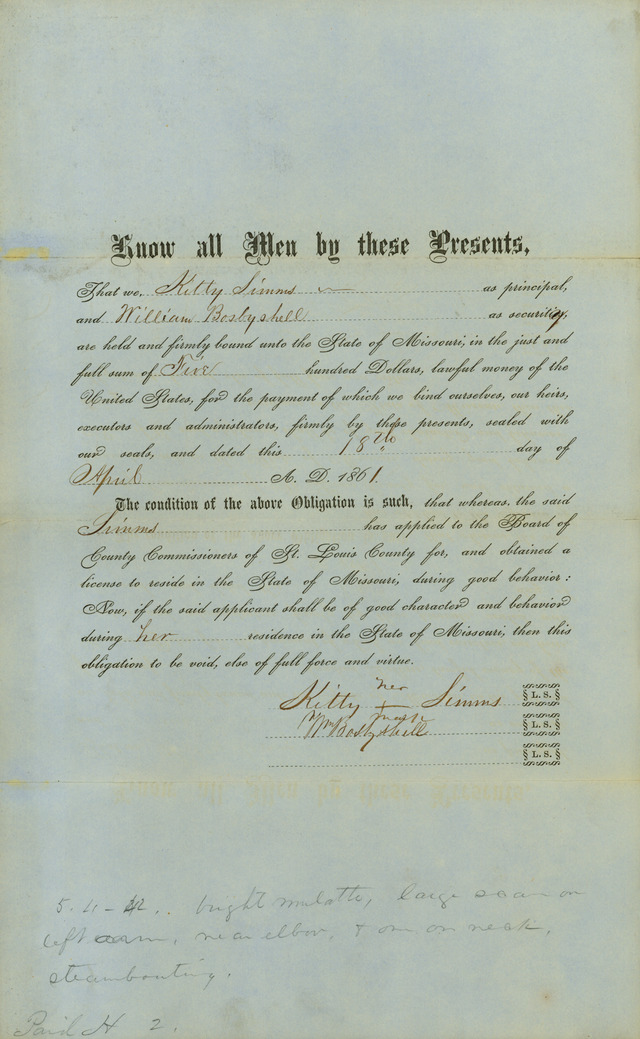 Know all Men by these Presents,
That we, Kitty Simms as principal,
and William Bosbyshell as security,
are held and firmly bound unto the State of Missouri, in the just and
full sum of Five hundred Dollars, lawful money of the
United States, for the payment of which we bind ourselves, our heirs,
executors and administrators, firmly by these presents, sealed with
our seals, and dated this 18th day of
April A. D. 1861.
The condition of the above Obligation is such, that whereas, the said
Simms has applied to the Board of
County Commissioners of St. Louis County for, and obtained a
license to reside in the State of Missouri, during good behavior:
Now, if the said applicant shall be of good character and behavior
during her residence in the State of Missouri, then this
obligation to be void, else of full force and virtue.
her
Kitty + Simms L. S.
mark
Wm Bosbyshell L. S.
L. S.
5-4- bright mulatto, large scar on
left arm, near elbow, & one on neck,
steamboating.
Paid H 2.